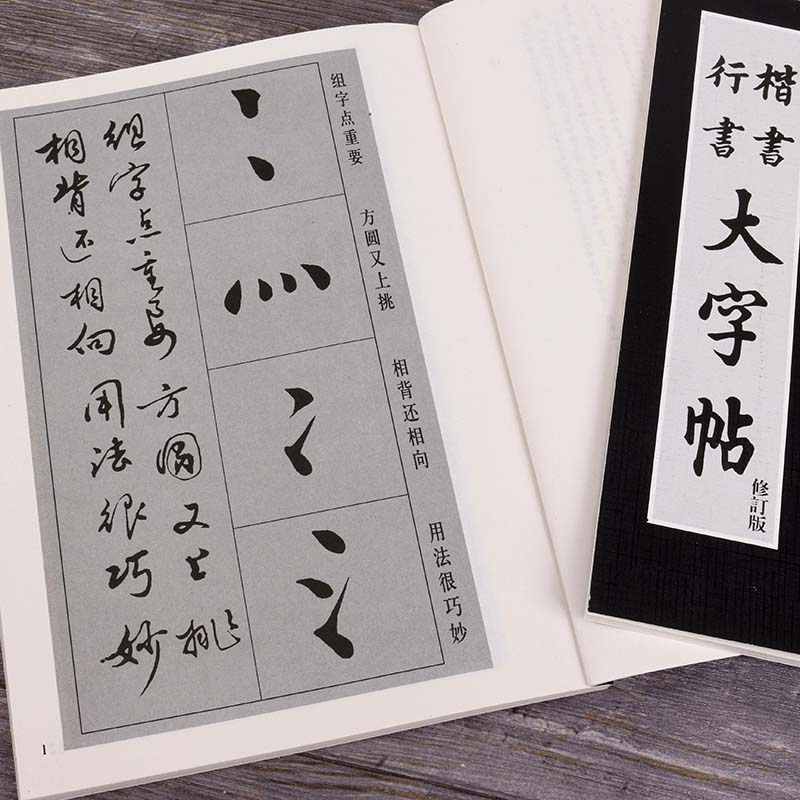 组字点重要
方圆又上挑
相背还相向
用法很巧妙
组字点重要
方圆又上挑
相背还相向
用法很巧妙
1
楷書
行書
大字帖
修訂版